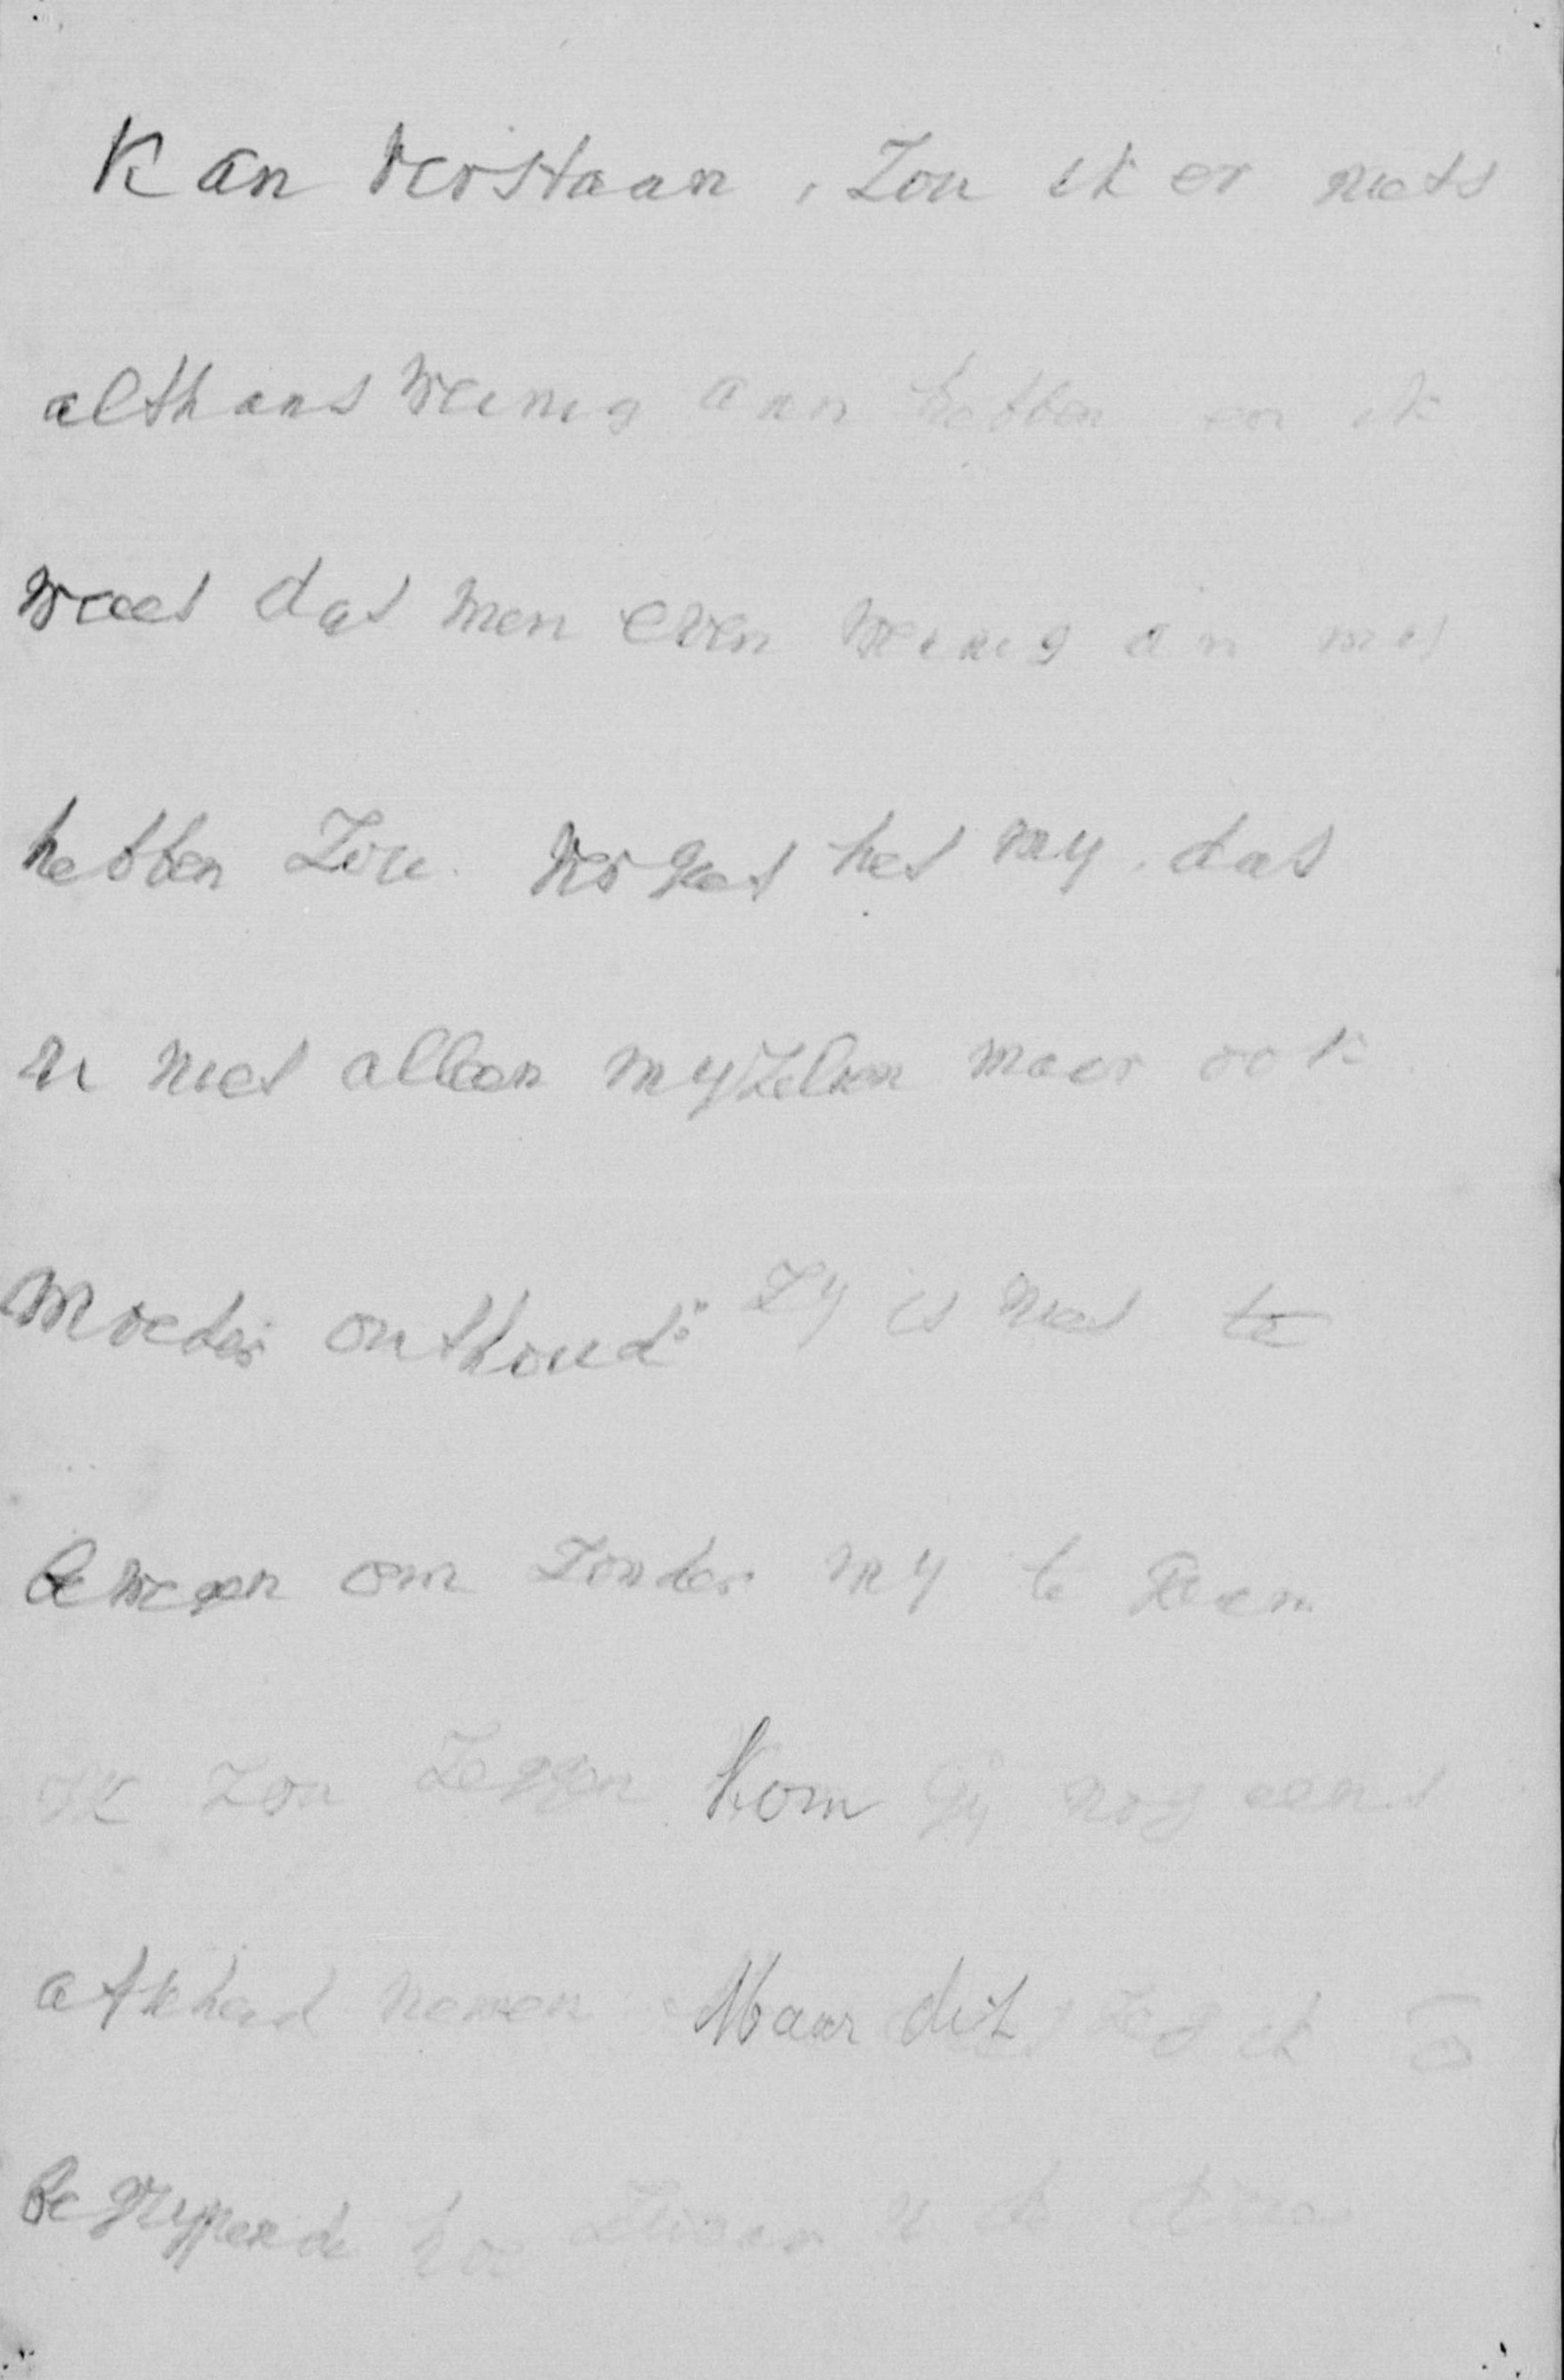 Kan verstaan, zou ik er niets
althans weinig aan hebben en ik
weet dat men even weinig an mij
hebben zou. Vergeet het my, dat
u niet alleen myzelven maar ook
Moeder onthoud. Zy is niet te
bewegen om zonder my te gaan.
Ik zou zeggen Kom gij nog eens
afscheid nemen Maar dit zeg ik
begrypende hoe zwaar u de